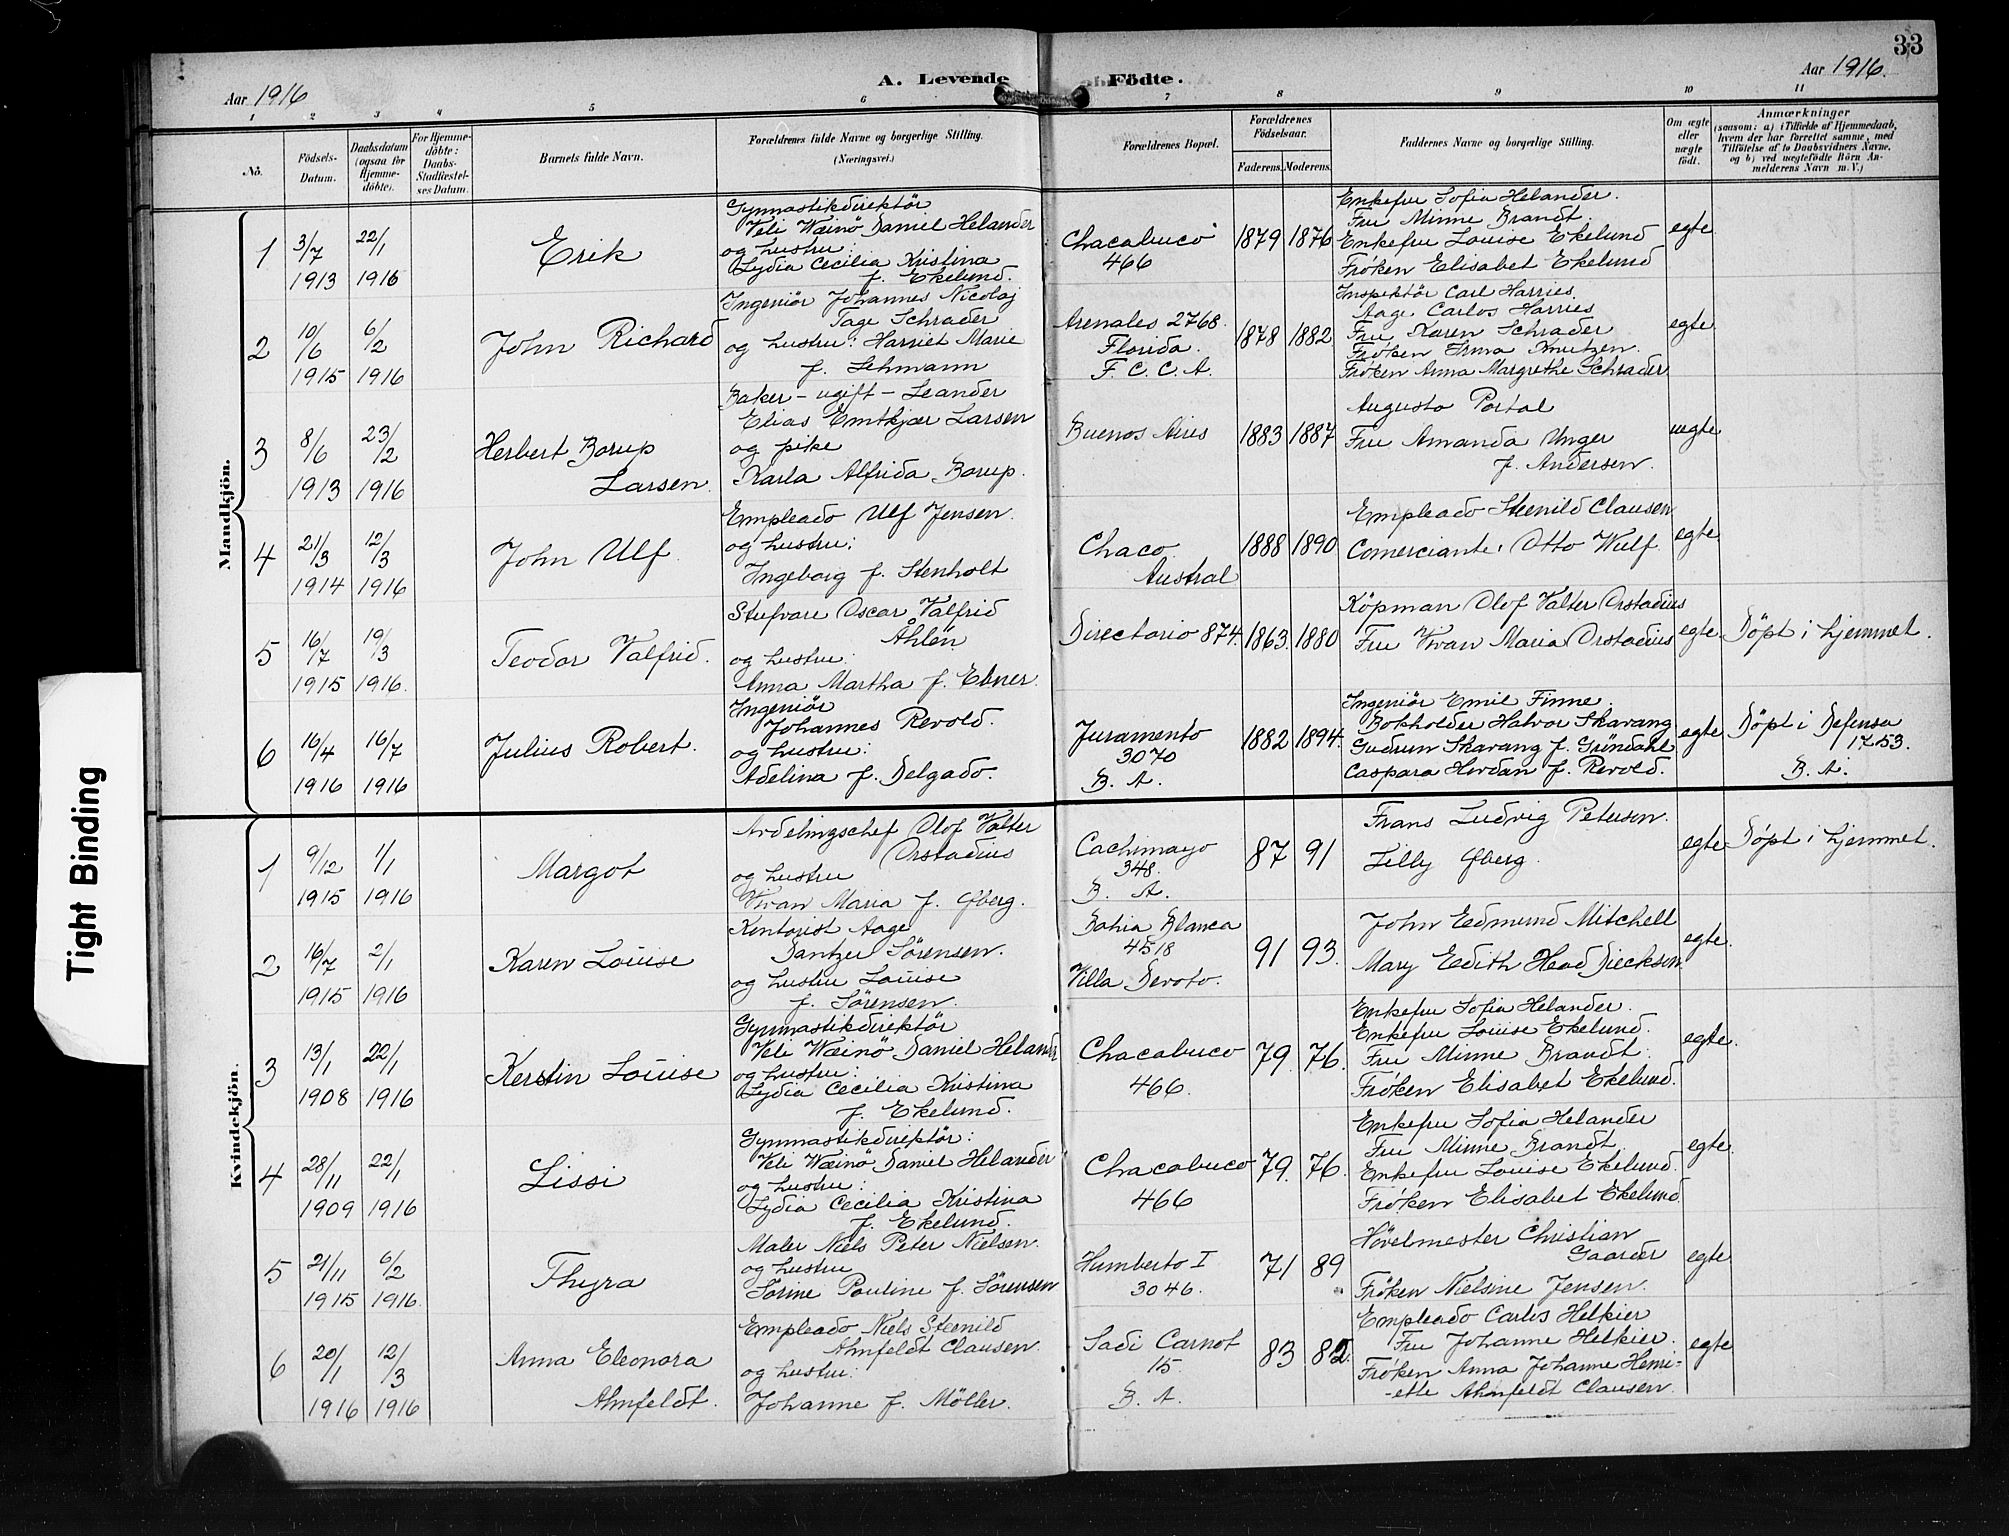 33
A. Levende Födte.
Aar 1916
Aar 1916.
1 2 3 4 5 6 7 8 9 10 11
No.
Födsels-Datum.
Daabsdatum (ogsaa for Hjemmedöbte).
For Hjemmedöbte: Daabs-Stadfæstelses Datum.
Barnets fulde Navn.
Forældrenes fulde Navne og borgerlige Stilling.
(Næringsvei.)
Forældrenes Bopæl.
Forældrenes Födselsaar.
Faderens. Moderens.
Faddernes Navne og borgerlige Stilling.
Om ægte eller uægte födt.
Anmærkninger
(saasom: a) i Tilfælde af Hjemmedaab, hvem der har forrettet samme, med Tilföielse af to Daabsvidners Navne, og b) ved uægtefödte Börn Anmelderens Navn m. V.)
Mandkjön.
1
3/7 1913
22/1 1916
Erik
Gymnastikdirektör
Veli Wæinö Daniel Helander
og hustru:
Lydia Cecilia Kristina
f. Ekelund.
Chacabuco
466
1879 1876
Enkefru Sofia Helander.
Fru Minne Brandt.
Enkefru Louise Ekelund
Frøken Elisabet Ekelund
egte
2
10/6 1915
6/2 1916
John Richard
Ingeniör Johannes Nicolaj
Tage Schrader
og hustru: Harriet Marie
f. Lehmann
Arenales 2768.
Florida.
F. C. C. A.
1878 1882
Inspektör Carl Harries.
Aage Carlos Harries
Fru Karen Schrader
Frøken Irma Knutzen.
Frøken Anna Margrethe Schrader
egte
3
8/6 1913
23/2 1916
Herbert Borup
Larsen.
Baker - ugift - Leander
Elias Emtkjær Larsen
og pike
Karla Alfrida Borup.
Buenos Aires
1883 1887
Augusto Portal
Fru Amanda Unger
f. Andersen.
uegte
4
21/3 1914
12/3 1916
John Ulf.
Empleado Ulf Jensen.
og hustru:
Ingeborg f. Stenholt
Chaco
Austral
1888 1890
Empleado Steenild Clausen
Comerciante: Otto Wulf.
egte
5
16/7 1915
19/3 1916.
Teodor Valfrid.
Stufvare Oscar Valfrid
Åhlén
og hustru:
Anna Martha f. Ebner.
Directorio 874.
1863. 1880
Köpman Olof Valter Orstadius
Fru Vivan Maria Orstadius
egte
Döpt i hjemmet.
6
16/4 1916
16/7 1916
Julius Robert.
Ingeniör
Johannes Revold.
og hustru:
Adelina f. Delgado.
Juramento
3070
B. A.
1882 1894.
Ingeniör Emil Finne.
Bokholder Halvor Skavang
Gudrun Skavang f. Gröndahl
Caspara Hordan f. Revold.
egte
Döpt i Defensa
1753.
B. A.
Kvindekjön.
1
9/12 1915
1/1 1916
Margot
Avdelingschef Olof Valter
Orstadius
og hustru
Vivan Maria f. Öberg.
Cachimayo
348.
B. A.
87 91
Frans Ludvig Petersen.
Lilly Öberg.
egte
Döpt i hjemmet.
2
16/7 1915
2/1 1916
Karen Louise
Kontorist Aage
Dantzer Sörensen.
og hustru Louise
f. Sörensen.
Bahia Blanca
4518
Villa Devoto.
91 93.
John Edmund Mitchell
Mary Edith Head Diecksen.
egte.
3
13/1 1908
22/1 1916
Kerstin Louise
Gymnastikdirektör
Veli Wæinö Daniel Helander
og hustru:
Lydia Cecilia Kristina
f. Ekelund.
Chacabuco
466
79. 76.
Enkefru Sofia Helander.
Enkefru Louise Ekelund.
Fru Minne Brandt.
Frøken Elisabet Ekelund.
egte.
4
28/11 1909
22/1 1916
Lissi
Gymnastikdirektör:
Veli Wæinö Daniel Helander
og hustru:
Lydia Cecilia Kristina
f. Ekelund.
Chacabuco
466
79. 76.
Enkefru Sofia Helander
Fru Minne Brandt.
Enkefru Louise Ekelund.
Frøken Elisabet Ekelund.
egte.
5
21/11 1915
6/2 1916.
Thyra
Maler Niels Peter Nielsen.
og hustru
Sörine Pouline f. Sörensen
Humberto I
3046.
71 89
Hövelmester Christian
Gaarder
Frøken Nielsine Jensen.
egte
6
20/1 1916
12/3 1916
Anna Eleonora
Ahnfeldt.
Empleado Niels Steenild
Ahnfeldt Clausen.
og hustru:
Johanne f. Möller.
Sadi Carnot
15
B. A.
83 82.
Empleado Carlos Helkier
Fru Johanne Helkier.
Frøken Anna Johanne Henri-
-ette Ahnfeldt Clausen.
egte
Tight Binding